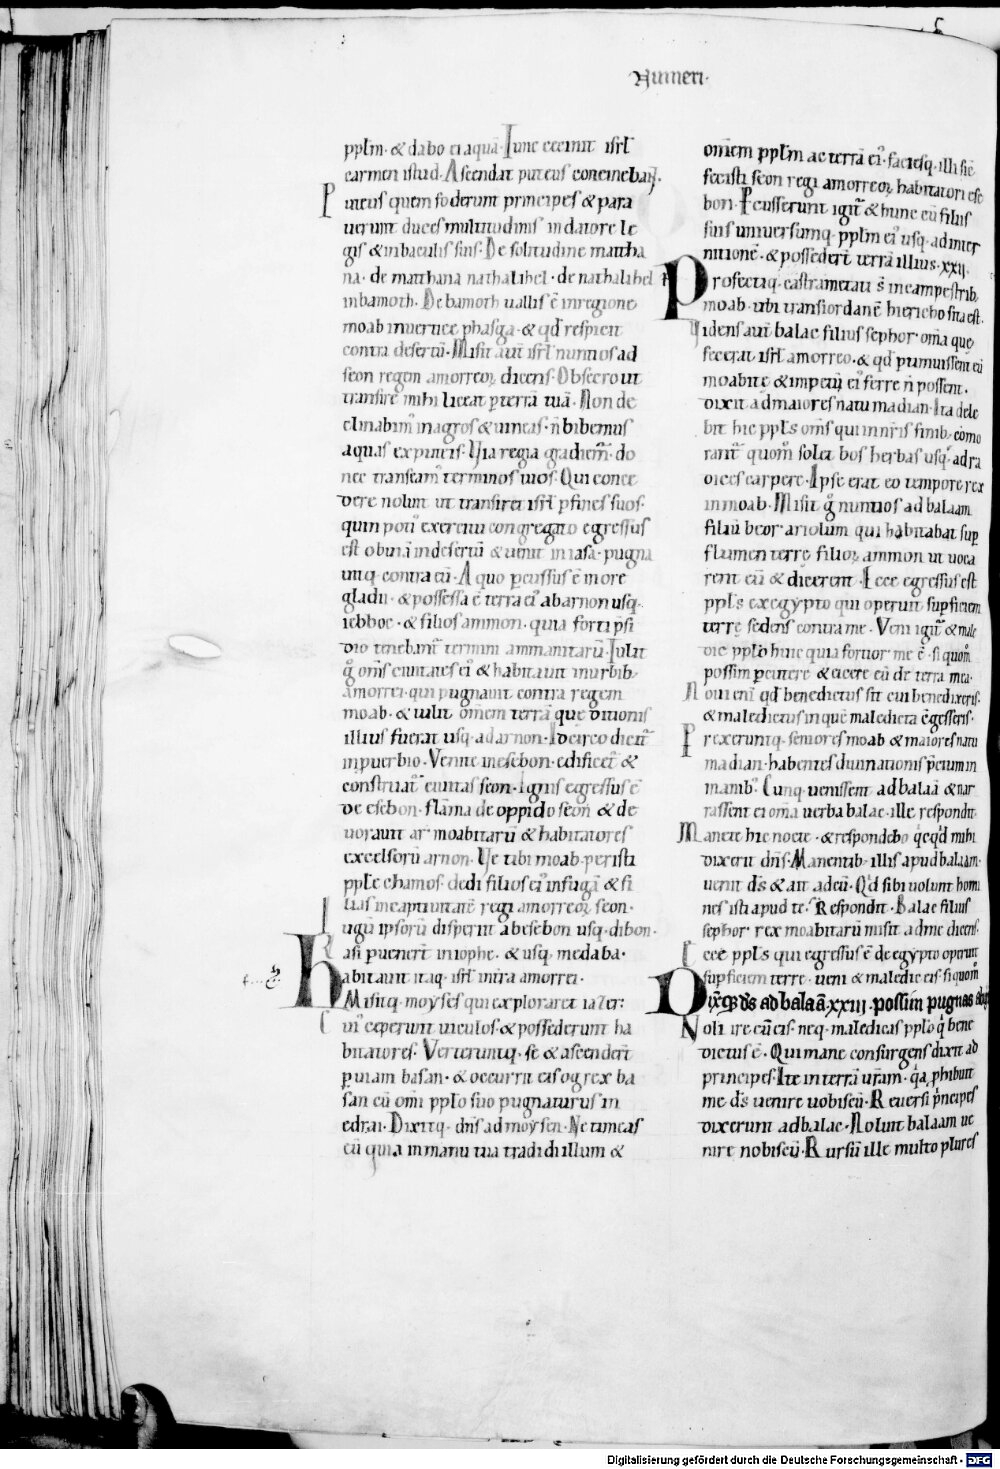 Numeri.
pplm̄. & dabo ei aquā. Tunc cecinit isrl̄
carmen istud. Ascendat puteus concinebant̄.
Puteus quem foderunt principes & para
uerunt duces multitudinis in datore le
gis & in baculis suis. De solitudine mattha
na. de matthana nathalihel. de nathalihel
in bamoth. De bamoth uallis ē in regione
moab in uertice phasga. & qđ respicit
contra desertū. Misit aut̄ isrl̄ nuntios ad
seon regem amorreoꝝ dicens. Obsecro ut
transire mihi liceat ꝑ terrā tuā. Non de
clinabim᷒ in agros & uineas. n̄ bibemus
aquas ex puteis. Via regia gradiem̄. do
nec transeam᷒ terminos tuos. Qui conce
dere noluit ut transiret isrl̄ ꝑ fines suos.
quin poti᷒ exercitu congregato egressus
est obuiā in desertū & uenit in iasa. pugna
uitq; contra eū. A quo ꝑcussus ē in ore
gladii. & possessa ē terra ei᷒ ab arnon usq;
iebboc. & filios ammon. quia forti p̄si
dio tenebant̄ termini ammanitarū. Tulit
g̊ om̄s ciuitates ei᷒ & habitauit in urbib;
amorrei. qui pugnauit contra regem
moab. & tulit om̄em terrā que ditionis
illius fuerat usq; ad arnon. Idcirco dicit̄
in ꝓuerbio. Venite in esebon. edificet̄ &
construat̄ ciuitas seon. Ignis egressus ē
de esebon. flāma de oppido seon & de
uorauit ar moabitarū & habitatores
excelsorū arnon. Ve tibi moab. peristi
pple chamos. dedit filios ei᷒ in fugā & fi
lias in captiuitatē regi amorreoꝝ seon.
Iugū ipsorū disperiit ab esebon usq; dibon.
Lassi ꝑuenert̄ in iophe. & usq; medaba.
Habitauit itaq; isrl̄ in terra amorrei.
Misitq; moyses qui explorarent iazer:
Cui᷒ ceperunt uiculos. & possederunt ha
bitatores. Verteruntq; se & ascendert̄
ꝑ uiam basan. & occurrit eis og rex ba
san cū om̄i pplo suo pugnaturus in
edrai. Dixitq; dn̄s ad moysen. Ne timeas
eū quia in manu tua tradidi illum &
om̄em pplm̄ ac terrā ei᷒. faciesq; illi sic̄
fecisti seon regi amorreoꝝ habitatori ese
bon. Percusserunt igit̄ & hunc cū filiis
suis uniuersumq; pplm̄ ei᷒ usq; ad inter
nitionē. & possedert̄ terrā illius. XXII.
Profectiq; castrametati s̄t in campestrib;
moab. ubi trans iordanē hiericho sita est.
Videns aut̄ balac filius sephor om̄a que
fecerat isrl̄ amorreo. & qđ ꝑtimuissent eū
moabite & impetū ei᷒ ferre n̄ possent.
dixit ad maiores natu madian. Ita dele
bit hic ppls̄ om̄s qui in nr̄is finib; cōmo
rant̄ quom᷒ solet bos herbas usq; ad ra
dices carpere. Ipse erat eo tempore rex
in moab. Misit g̊ nuntios ad balaam
filiū beor ariolum qui habitabat suꝑ
flumen terre filioꝝ ammon ut uoca
rent eū & dicerent. Ecce egressus est
ppls̄ ex egypto qui operuit suꝑficiem
terre sedens contra me. Veni igit̄ & male
dic pplo huic quia fortior me ē. si quom᷒
possim ꝑcutere & eicere eū de terra mea.
Noui eni qđ benedictus sit cui benedixeris.
& maledictus in quē maledicta c̄gesseris.
Perrexeruntq; seniores moab & maiores natu
madian. habentes diuinationis p̄cium in
manib;. Cumq; uenissent ad balaā & nar
rassent ei om̄a uerba balac. ille respondit.
Manete hic nocte. & respondebo qͥcqͥd mihi
dixerit dn̄s. Manentib; illis apud balaam.
uenit ds̄ & ait ad eū. Qͥd sibi uolunt homi
nes isti apud te. Respondit. Balac filius
sephor rex moabitarū misit ad me dicens.
Ecce ppls̄ qui egressus ē de egypto operuit
suꝑficiem terre. ueni & maledic eis. si quom᷒
Dixitq; ds̄ ad balaā. XXIII. possim pugnās abig̅
Noli ire cū eis. neq; maledicas pplo qͥ bene
dictus ē. Qui mane consurgens dixit ad
principes. Ite in terrā urām. qͣ ꝓhibuit
me ds̄ uenire uobiscū. Reuersi pͥncipes
dixerunt ad balac. Noluit balaam ue
nire nobiscū. Rursū ille multo plures
Digitalisierung gefördert durch die Deutsche Forschungsgemeinschaft - DFG